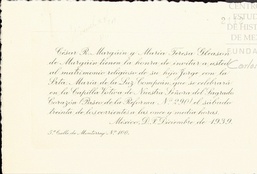 César R. Margáin y María Teresa Gleason
de Margáin tienen la honra de invitar a usted
al matrimonio religioso de su hijo Jorge con la
Srta. María de la Luz Compeán, que se celebrará
en la Capilla Votiva de Nuestra Señora del Sagrado
Corazón (Paseo de la Reforma Nº 290) el sábado
treinta de los corrientes a las once y media horas.
México, D.F. Diciembre de 1939.
CENTRO
ESTUDI
DE HISTO
DE ME
FUNDA